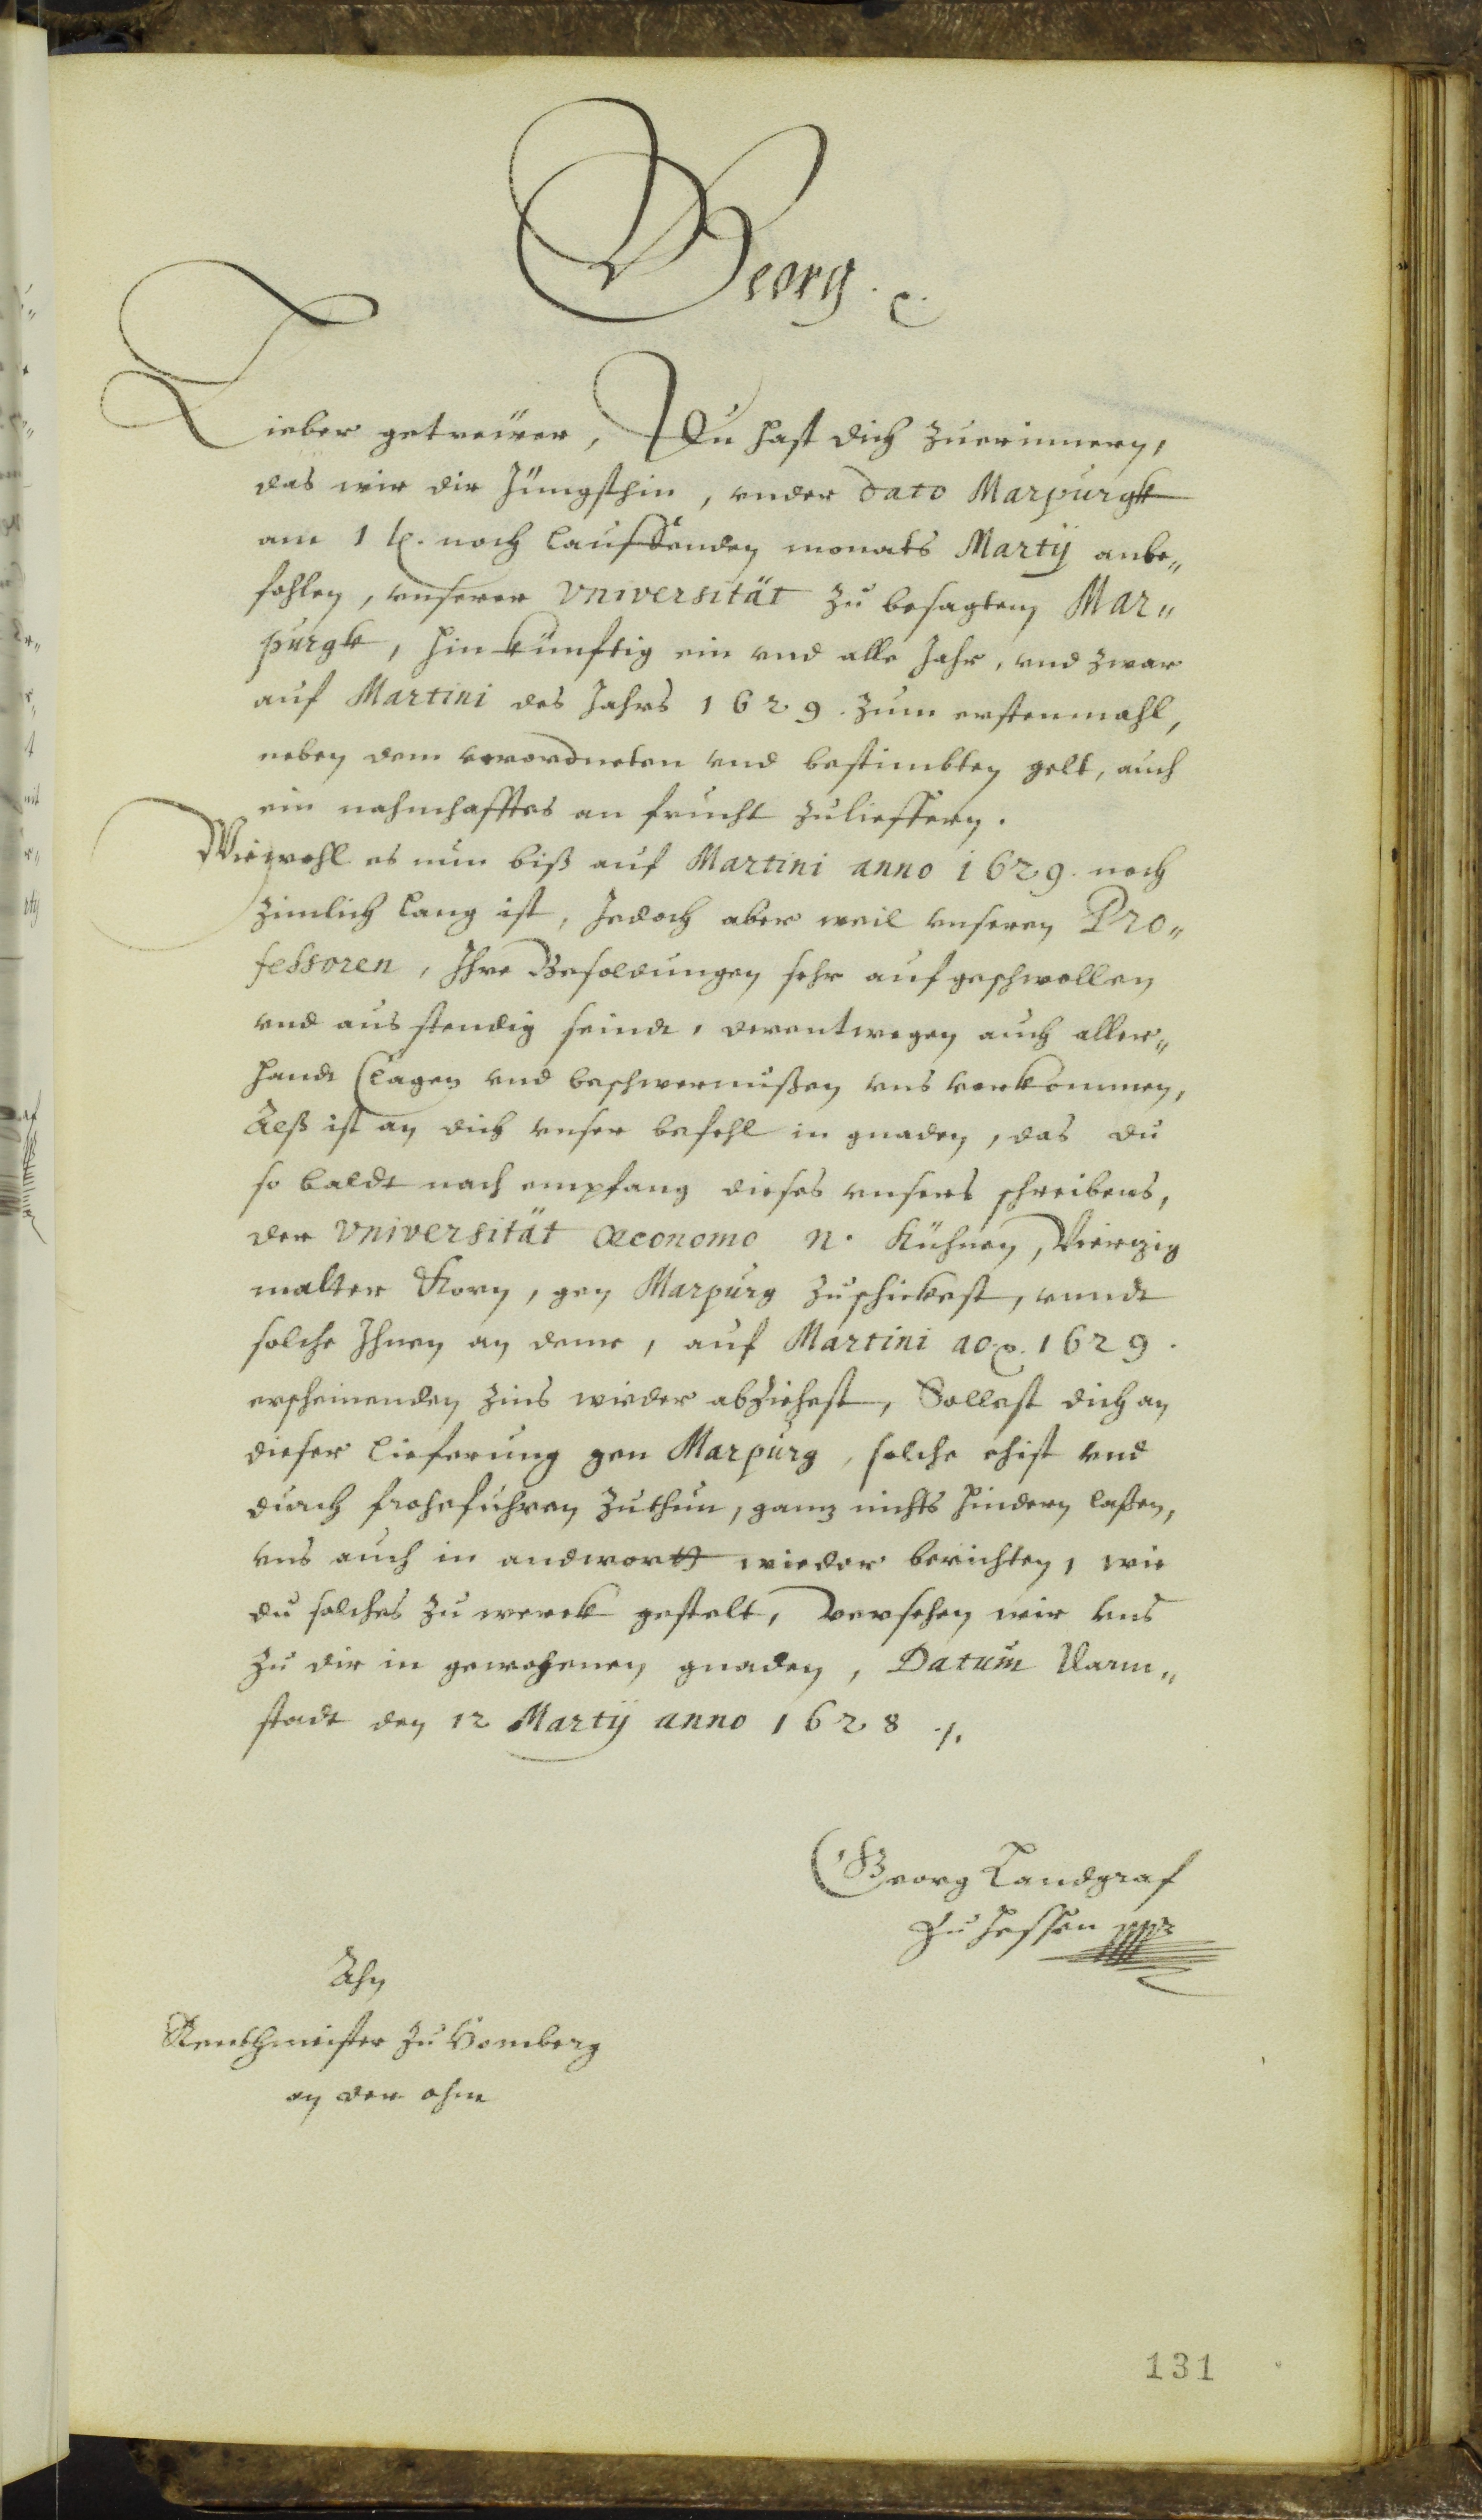 Georg. ꝛc.
Lieber getrewer, Du hast dich zuerinnern,
das wir dir Jüngsthin, vnder dato Marpurgk
am 1 t. noch lauffenden monats Martij anbe„
fohlen, vnserer Vniversität zu besagtem Mar„
purgk, hin künfftig ein vnd alle Jahr, vnd zwar
auf Martini des Jahrs 1629. zum erstenmahl,
neben dem verordneten vnd bestimbten gelt, auch
ein nahmhafftes an frucht zulieffern.
Wiewohl es nun biß auf Martini anno 1629. noch
zimlich lang ist, Jedoch aber weil vnseren Pro„
fessoren, Ihre Besoldungen sehr auf geschwollen
vnd aus stendig seind, derentwegen auch aller„
handt Clagen vnd beschwernußen vns vorkommen,
Alß ist an dich vnser befehl in gnaden, das du
so baldt nach empfang dieses vnsers schreibens,
der Vniversität Œconomo N. Kühnen, Vierzig
malter Korn, gen Marpurg zuschickest, vnndt
solche Ihnen an deme, auf Martini ao. 1629.
erscheinenden zins wieder abziehest, Sollest dich an
dieser lieferung gen Marpurg, solche ehist vnd
durch frohnfuhren zuthun, ganz nichts hindern laßen,
vns auch in andwortt wieder berichten, wie
du solches zu werck gestelt, Versehen wir vns
zu dir in gewogenen gnaden, Datum Darm„
stadt den 12 Martij anno 1628 ./.
Georg Landgraf
zu Hessen mpr
Ahn
Renthmeister zu Homberg
an der ohm
131